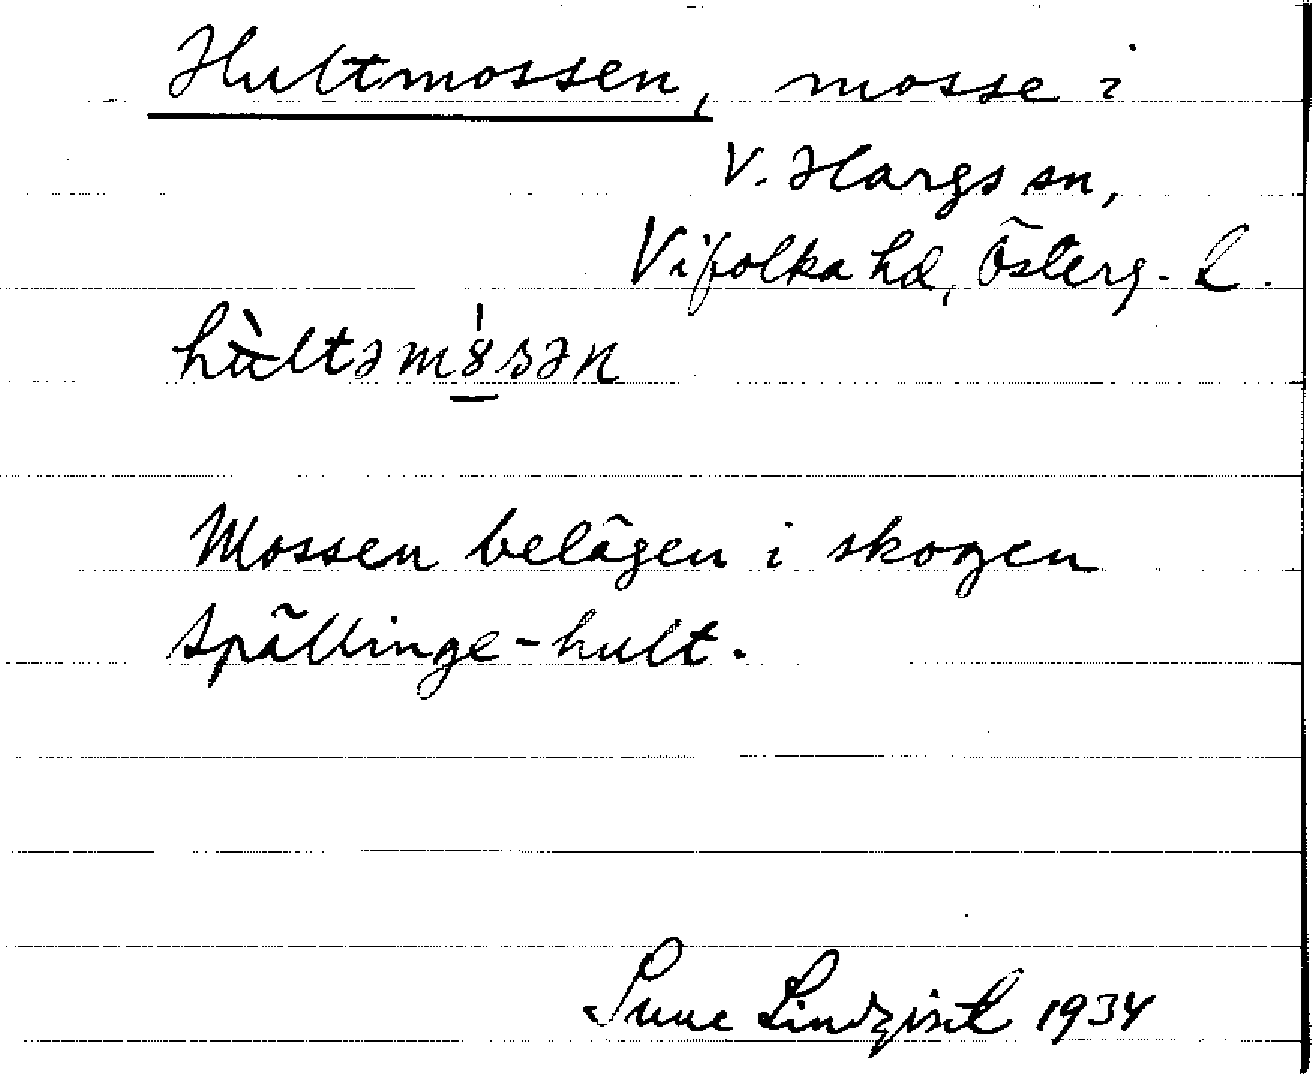 Hultmossen, mosse i
V. Hargs sn,
Vifolka hd, Österg. L.
hùltəm8́sən
Mossen belägen i skogen
Spällinge-hult.
Sune Lindqvist 1934